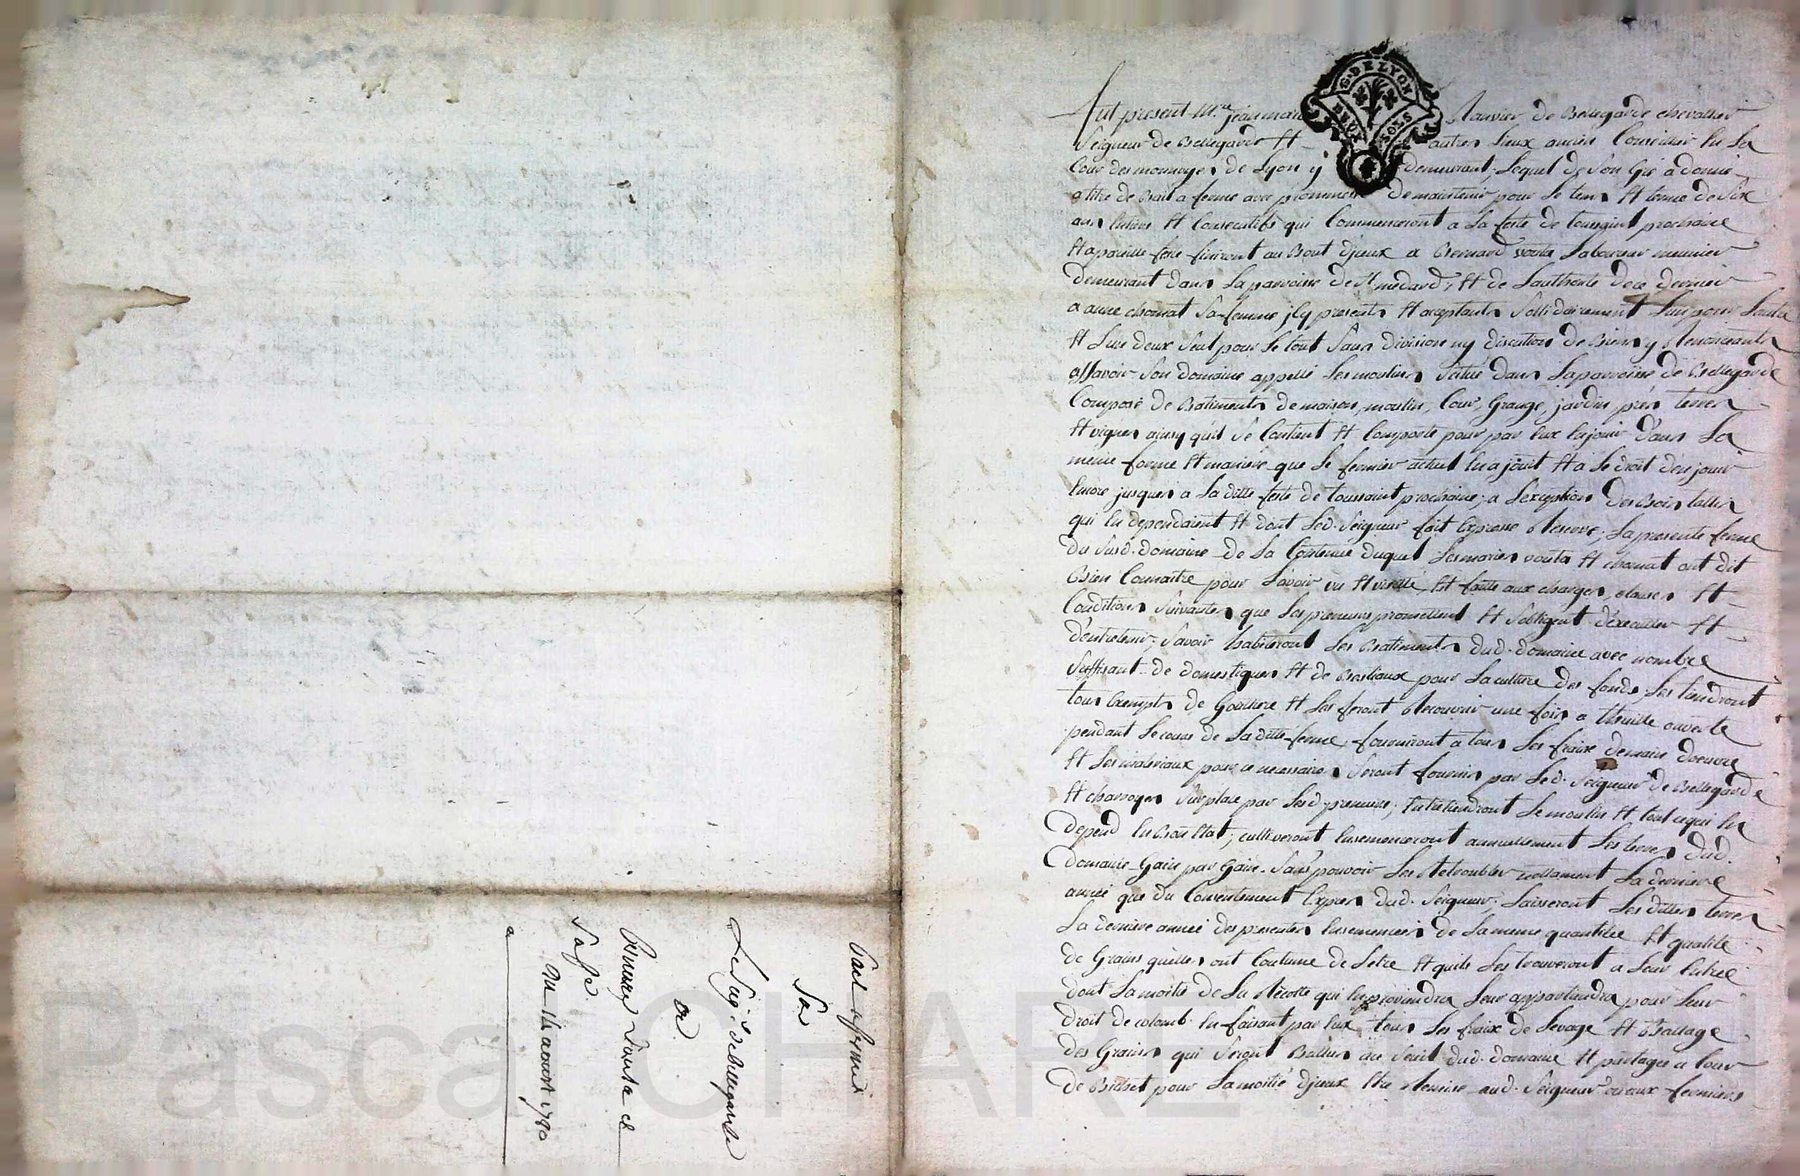 G. DE LYON
DEUX SOLS
Fut present Mre jean marie Ranvier de Bellegarde chevallier
Seigneur de Bellegarde Et autres Lieux ancien Conseiller En La
Cour des monnoyes de Lyon y demeurant; Lequel de Son Gré a donné
a titre de Bail a ferme avec promesse de maintenir pour Le tems Et terme de Six
ans Entiers Et Consecutifs qui Commenceront a La feste de toussaint prochaine
Et a pareille feste finiront au Bout d'jceux a Bernard vouta Laboureur meunier
demeurant dans La parroisse de St medard, Et de Lauthorité de ce dernier
a anne chomat Sa femme jcy presents Et acceptants Sollidairement L'un pour Lautre
Et L'un deux Seul pour Le tout Sans division ny discution de Biens y Renonceants
assavoir Son domaine appellé Les moulins Situé dans La parroisse de Bellegarde
Composé de Batiments de maison, moulin, Cour, Grange, jardin prés terres
Et vignes ainsy qu'il Se Contient Et Comporte pour par Eux En jouir dans La
meme forme Et maniere que Le fermier actuel En a jouit Et a Le droit d'en jouir
Encore jusques a La ditte feste de toussaint prochaine; a L'exception des Bois taillis
qui En dependoient Et dont Led. Seigneur fait Expresse Reserve; La presente ferme
du Susd. domaine de La Contenue duquel Les mariés vouta Et chomat ont dit
Bien Connaitre pour L'avoir vu Et visitté, Est faite aux charges, clauses Et
Conditions Suivantes que Les preneurs promettent Et S'obligent d'éxécuter Et
d'entretenir; Savoir habiteront Les Batiments dud. domaine avec nombre
Suffisant de domestiques Et de Bestiaux pour La culture des fonds, Les tiendront
tous Exempts de Gouttiere Et Les feront Recouvrir une fois a thuille ouverte
pendant Le cours de La ditte ferme, fourniront a tous Les fraix de main d'oeuvre
Et Les materiaux pour ce necessaires Seront fournis par Led. Seigneur de Bellegarde
Et charroyés Sur place par Lesd. preneurs; Entretiendront Le moulin Et tout ce qui En
depend En Bon Etat; cultiveront Ensemenceront annuellement Les terres dud.
domaine Gain par Gain Sans pouvoir Les Retroubler nottament La derniere
année que du Consentement Exprés dud. Seigneur; Laisseront Les dittes terres
La derniere année des presentes Ensemencées de La meme quantitée Et qualité
de Grains qu'elles ont Coutume de L'etre Et qu'ils Les trouveront a Leur Entrée
dont La moitié de La Récolte qui En proviendra Leur appartiendra pour Leur
droit de colomb. En faisant par Eux tous Les fraix de Levage Et Battage
des Grains qui Seront Battus au Seuil dud. domaine Et partagés a Cour
de Bichet pour La moitié d'jceux Etre Remise aud. Seigneur ou aux fermiers
Bail a ferme
Par
Le Seig. de Bellegarde
a
Bernard Vouta et
Sa fe.
Du 14 aoust 1780